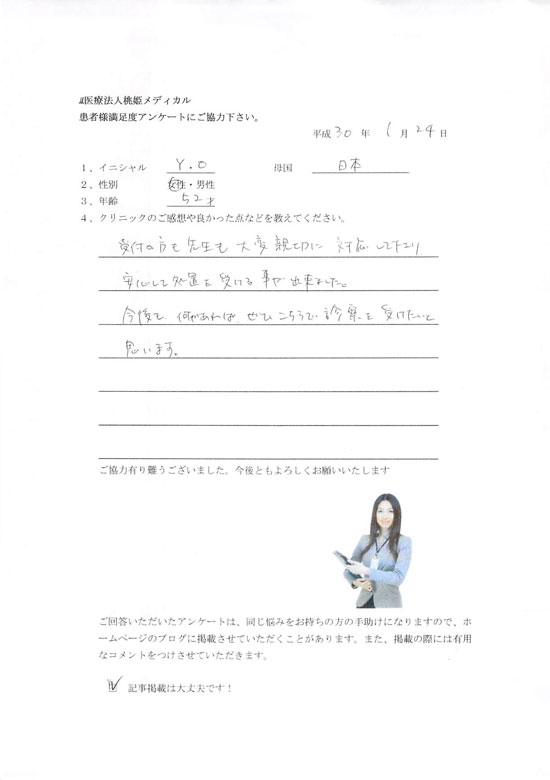 医療法人桃姫メディカル
患者様満足度アンケートにご協力下さい。
平成 30 年 1 月 24 日
1、イニシャル Y.O 母国 日本
2、性別 女性・男性
3、年齢 52才
4、クリニックのご感想や良かった点などを教えてください。
受付の方も先生も大変親切に対応して下さり
安心して処置を受ける事が出来ました。
今後も何かあれば ぜひこちらで診察を受けたいと
思います。
ご協力有り難うございました。今後ともよろしくお願いいたします
ご回答いただいたアンケートは、同じ悩みをお持ちの方の手助けになりますので、ホ
ームページのブログに掲載させていただくことがあります。また、掲載の際には有用
なコメントをつけさせていただきます。
記事掲載は大丈夫です！